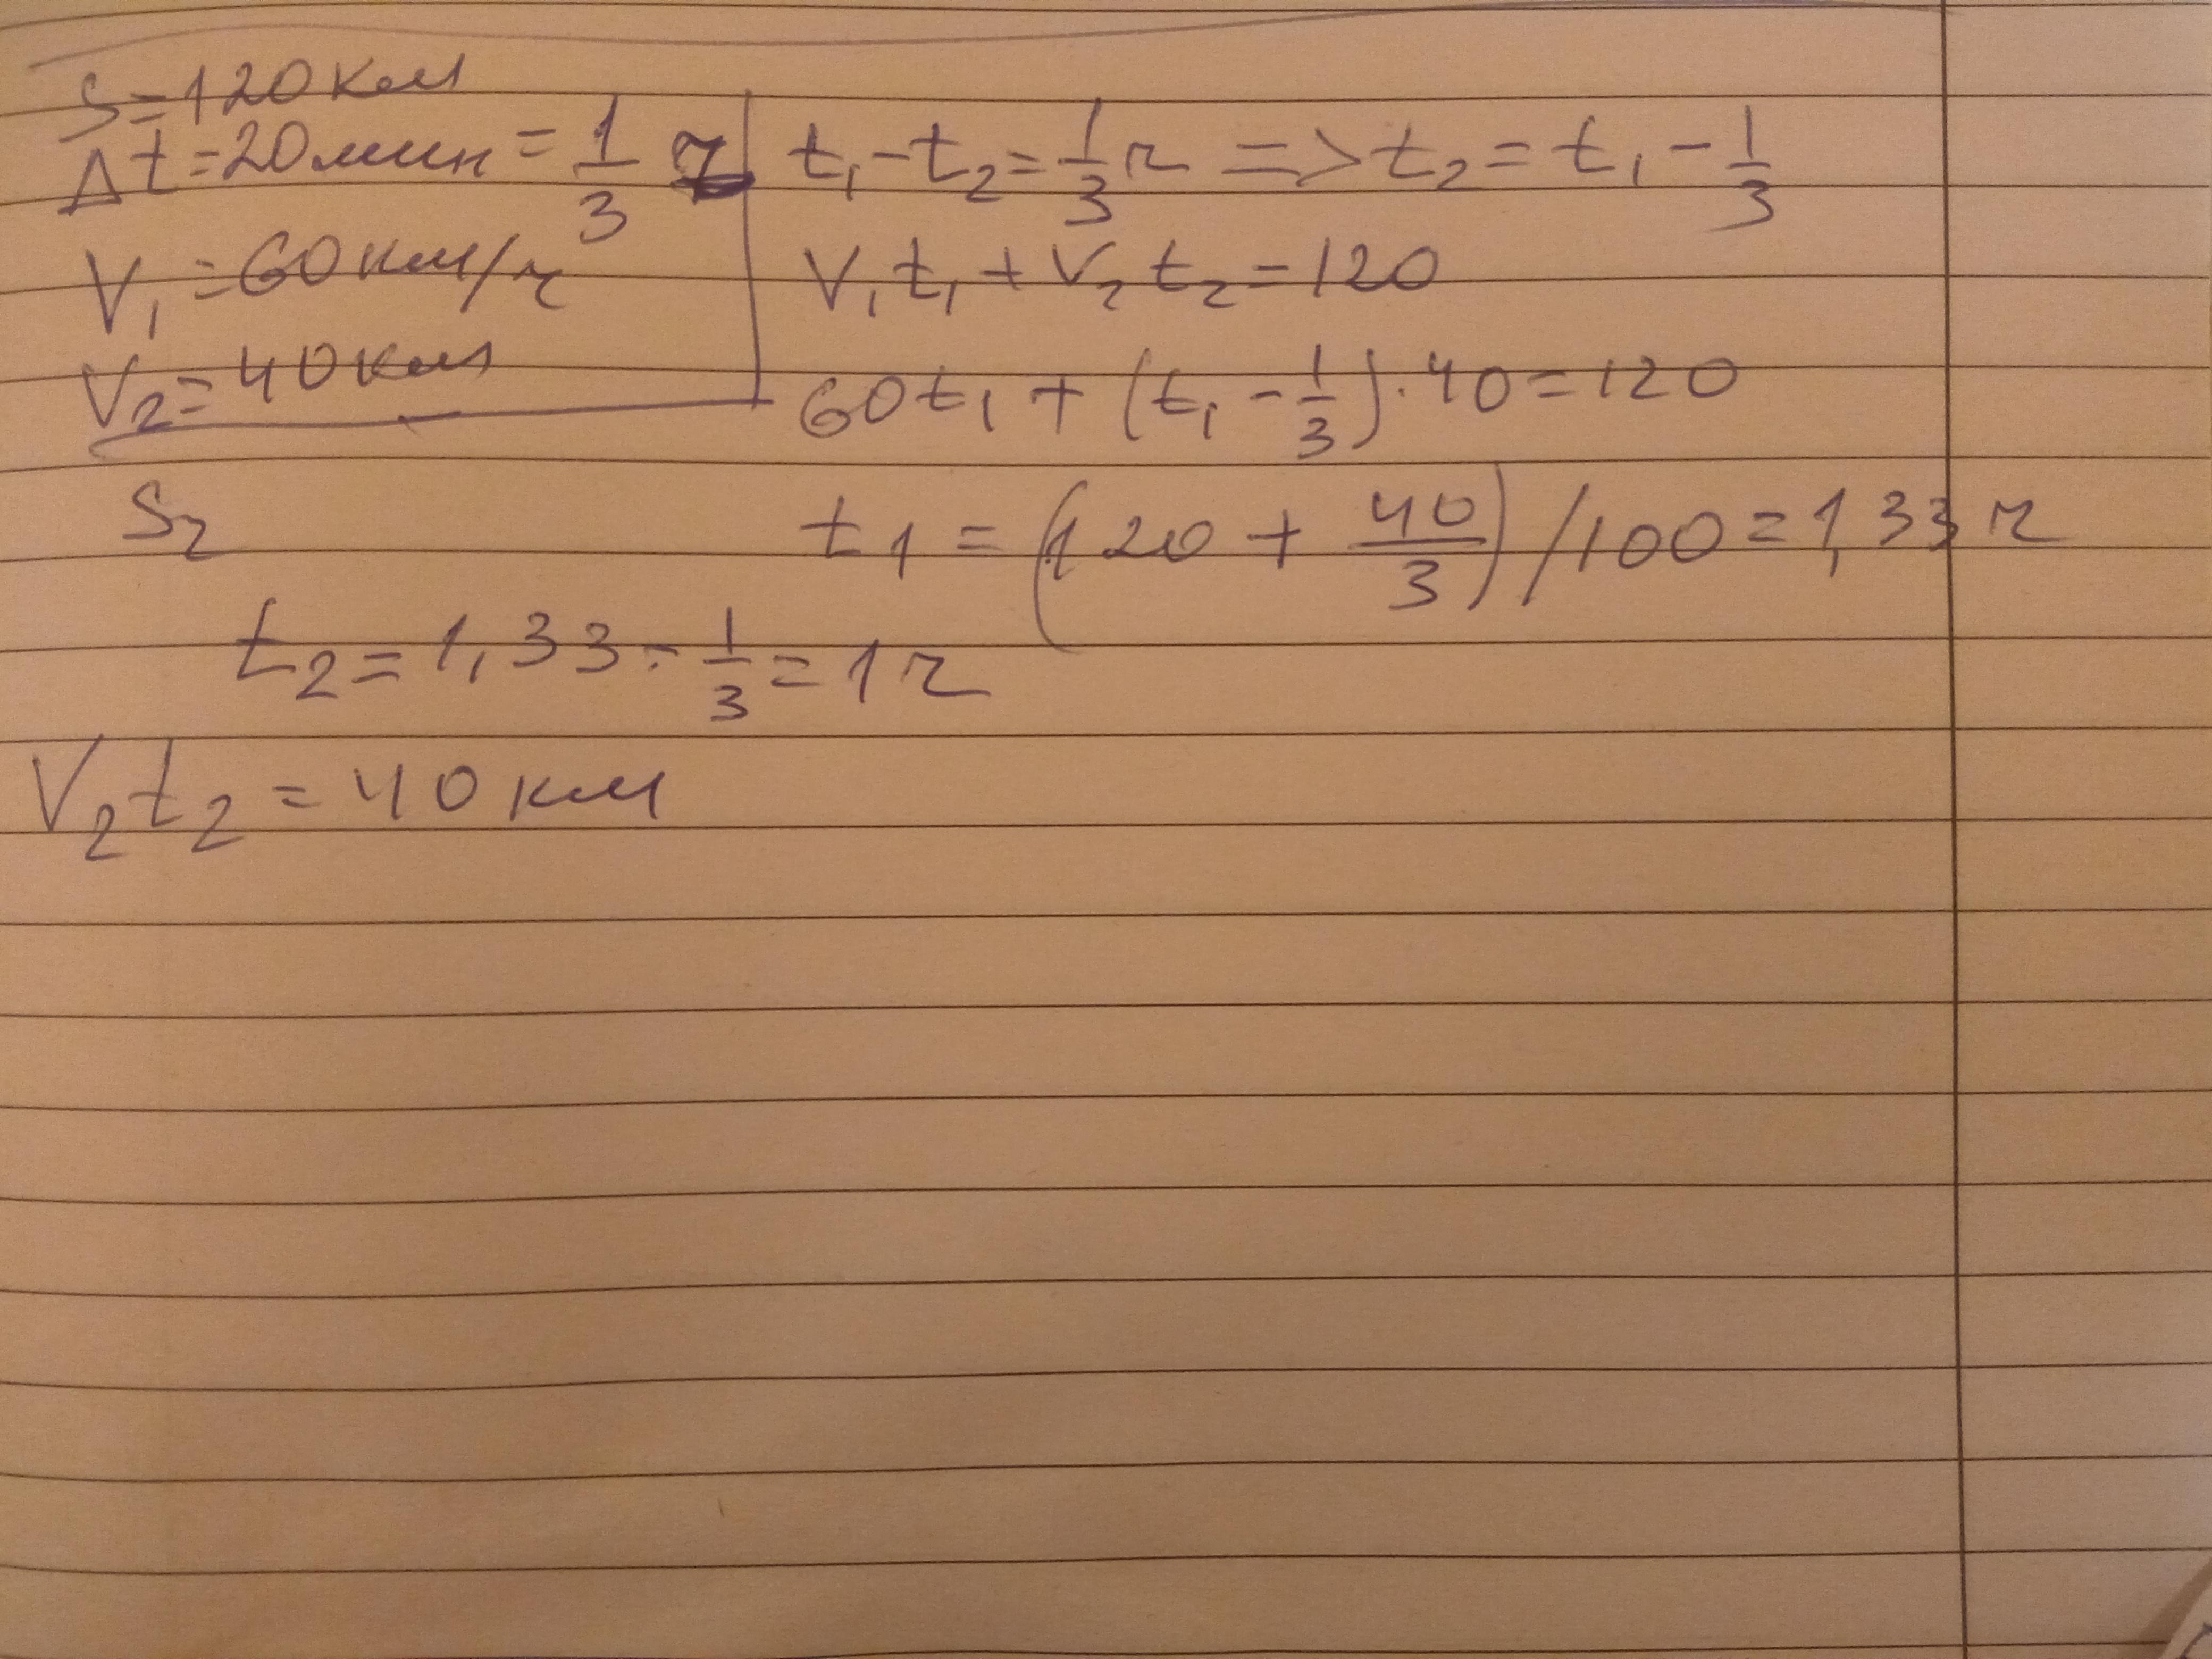 S=120км
Δt=20мин=1/3 ч
V₁=60км/ч
V₂=40км
S₂
t₁-t₂=1/3ч => t₂=t₁-1/3
V₁t₁+V₂t₂=120
60t₁+(t₁-1/3)·40=120
t₁=(120+40/3)/100=1,33ч
t₂=1,33-1/3=1ч
V₂t₂=40км